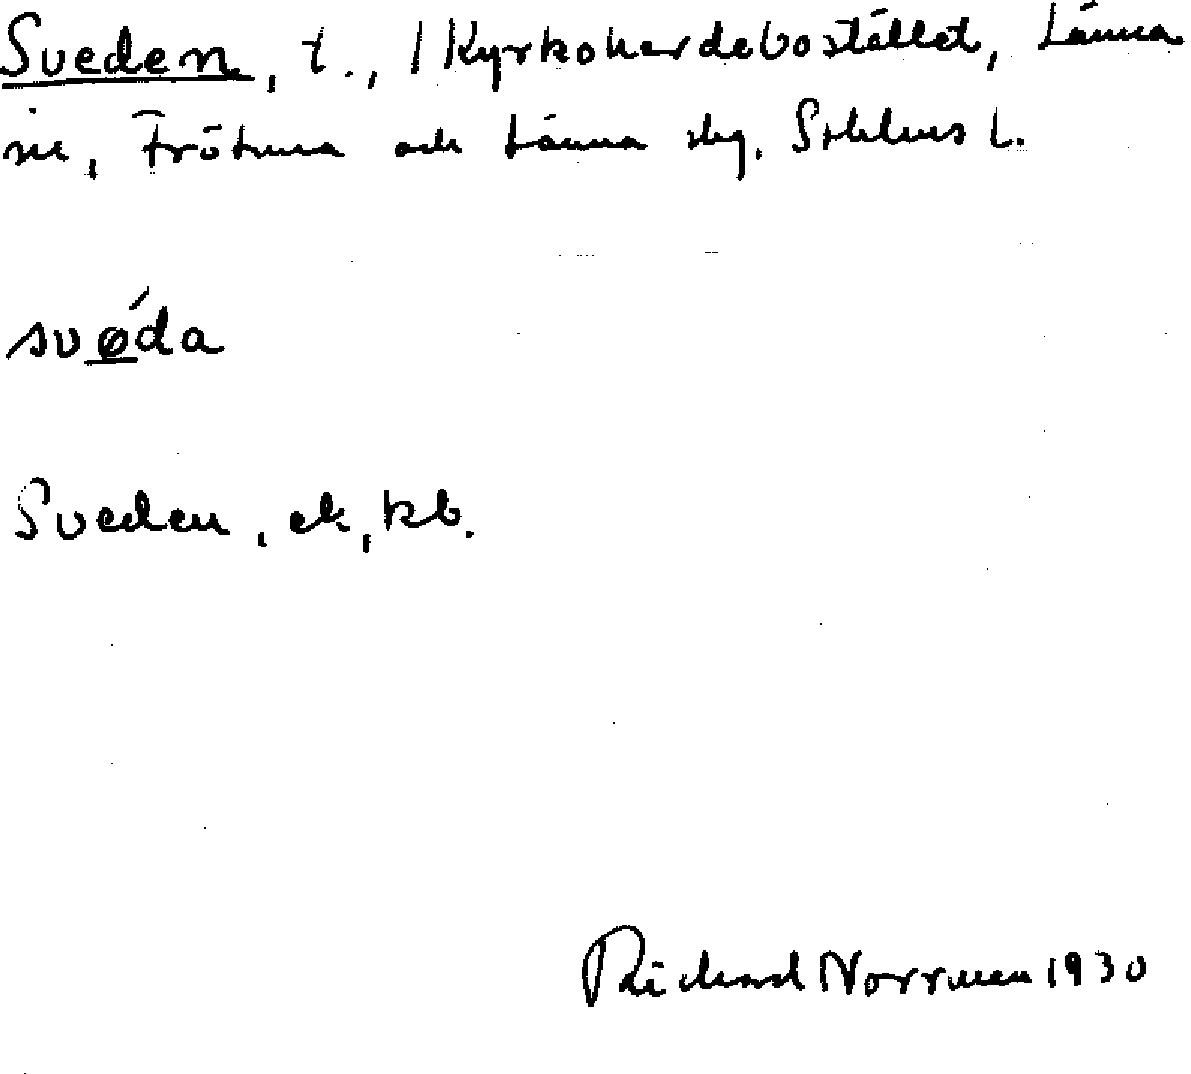 Sveden, t., 1 Kyrkoherdebostället, Länna
sn, Frötuna och Länna skg. Sthlms l.
svǿda
Sveden, ek, kb.
Richard Norrman 1930